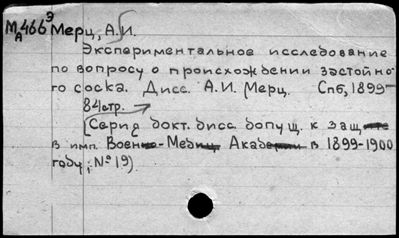 МА466Э Мерц, А.И.
Экспериментальное исследование
по вопросу о происхождении застойно
го соска. Дисс. А.И. Мерц. Спб, 1899
84стр.
(Серия докт. дисс. допущ. к защ
в имп. Военно-Медиц Академии в 1899-1900
году; №19)